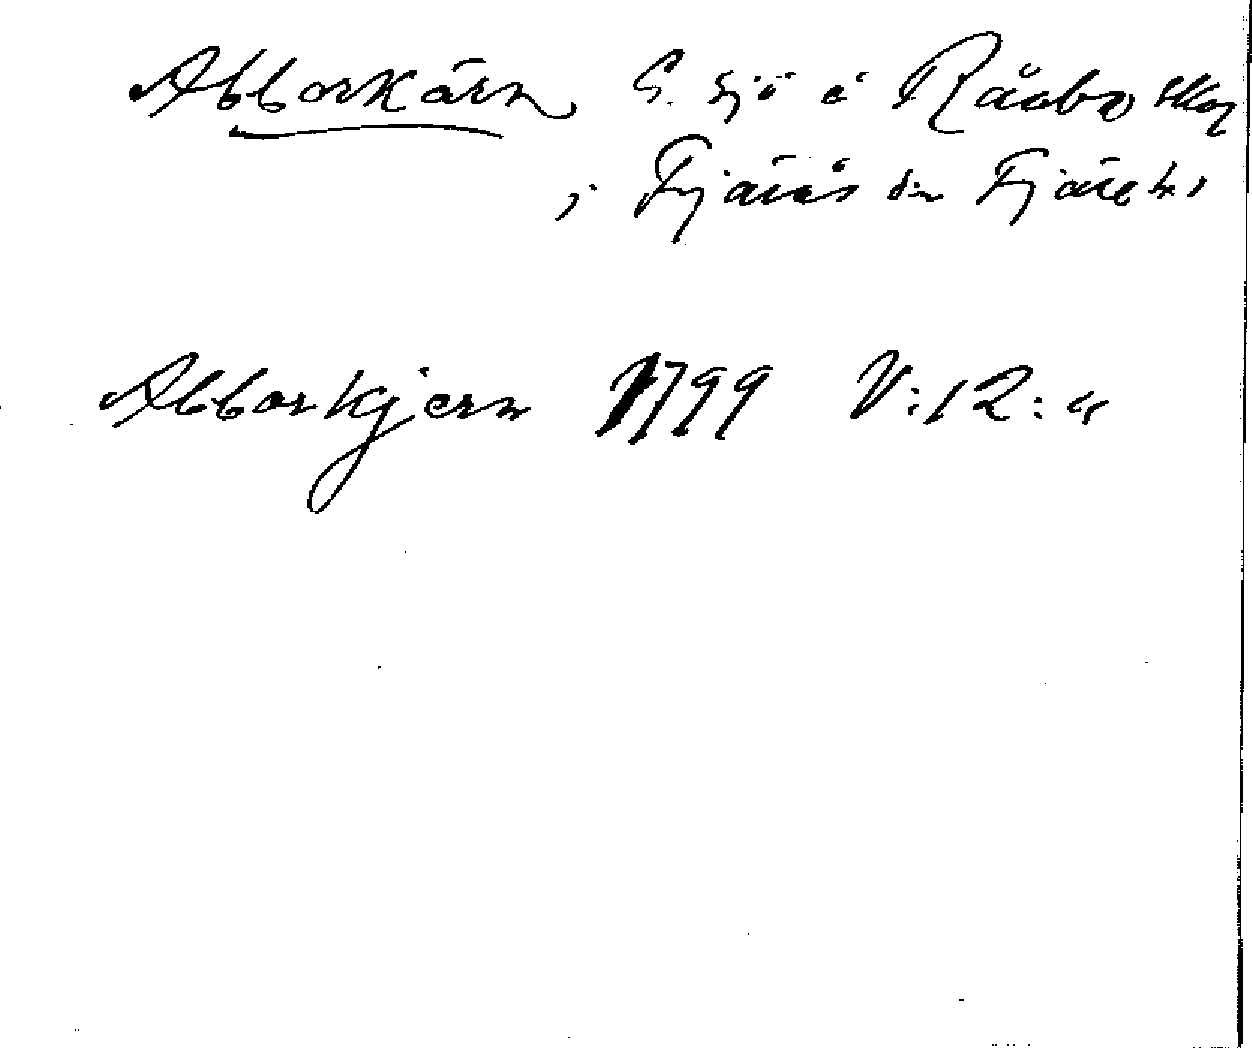 Abborkärn S. sjö å Råabo skog
i Fjärås sn Fjäre hd
Abborkjern 1799 V:12:a